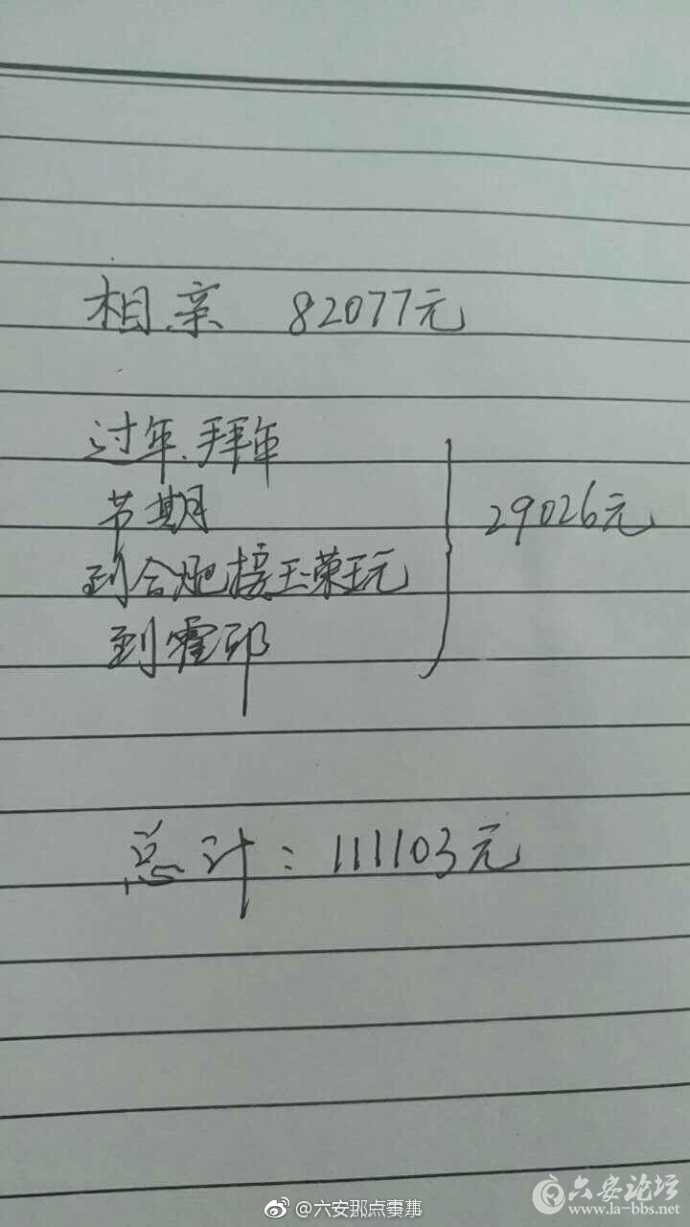 相亲 82077元
过年.拜年
节期
29026元
到合肥接玉荣玩
到霍邱
总计：111103元
@六安那点事茬
六安论坛
www.la-bbs.net